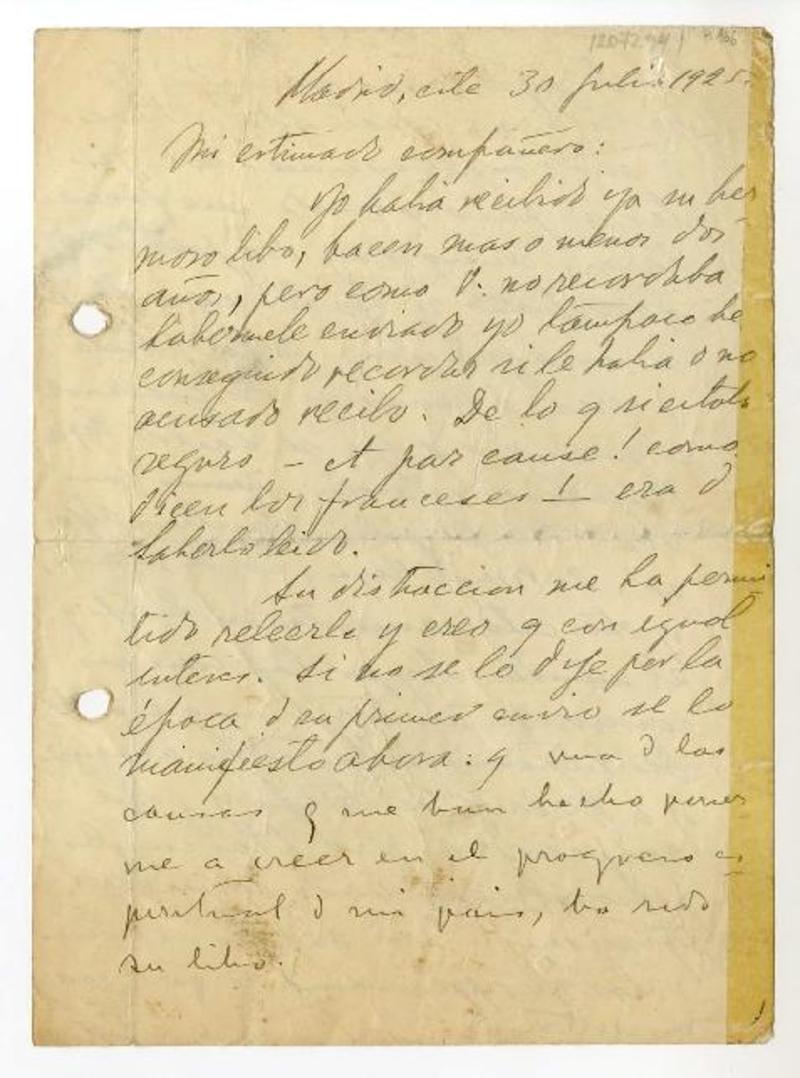 Madrid, este 30 Julio 1925.
Mi estimado compañero:
Yo habia recibido ya su her
moso libro, hacen mas o menos dos
años, pero como V. no recordaba
habermele enviado yo tampoco he
conseguido recordar si le habia o no
acusado recibo. De lo q si estaba
seguro - et par cause! como
dicen los franceses! - era d
haberlo leido.
Su distraccion me ha permi
tido releerlo y creo q con igual
interes. Si no se lo dije por la
época d su primer envio se lo
manifiesto ahora: q una d las
causas q me han hecho poner
me a creer en el progreso es
piritual d mi pais, ha sido
su libro.